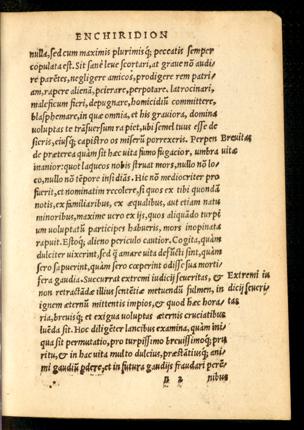 ENCHIRIDION
nulla, sed cum maximis plurimisq; peccatis semper
copulata est. Sit sanè leue scortari, at graue nō audi/
re parētes, negligere amicos, prodigere rem patri/
am, rapere alienā, peierare, perpotare, latrocinari,
maleficum fieri, depugnare, homicidiū committere,
blasphemare, in quæ omnia, et his grauiora, domina
voluptas te trāsuersum ra piet, ubi semel tuus esse de
sieris, eiusq; capistro os miserū porrexeris. Perpen Breuitas
de præterea quàm sit hac vita fumo fugacior, umbra vitæ
inanior: quot laqueos nobis struat mors, nullo nō lo/
co, nullo nō tēpore insidiās. Hic nō mediocriter pro
fuerit, et nominatim recolere, si quos ex tibi quondā
notis, ex familiaribus, ex æqualibus, aut etiam natu
minoribus, maxime uero ex ijs, quos aliquādo turpi
um voluptatū participes habueris, mors inopinata
rapuit. Estoq; alieno periculo cautior. Cogita, quàm
dulciter uixerint, sed q̃ amare vita defūcti sint, quàm
sero sapuerint, quàm sero cœperint odisse sua morti/
fera gaudia. Succurrat extremi iudicij seueritas, & Extremi iu
non retractādæ illius sentētiæ metuendū fulmen, in dicij seueri/
ignem æternū mittentis impios, & quod hæc hora/ tas
ria, breuisq; et exigua voluptas æternis cruciatibus
luēda sit. Hoc diligēter lancibus examina, quàm ini/
qua sit permutatio, pro turpissimo breuissimoq; pru
ritu, & in hac vita multo dulcius, præstātiusq; ani/
mi gaudiū pdere, et in futura gaudijs fraudari perē/
nibus